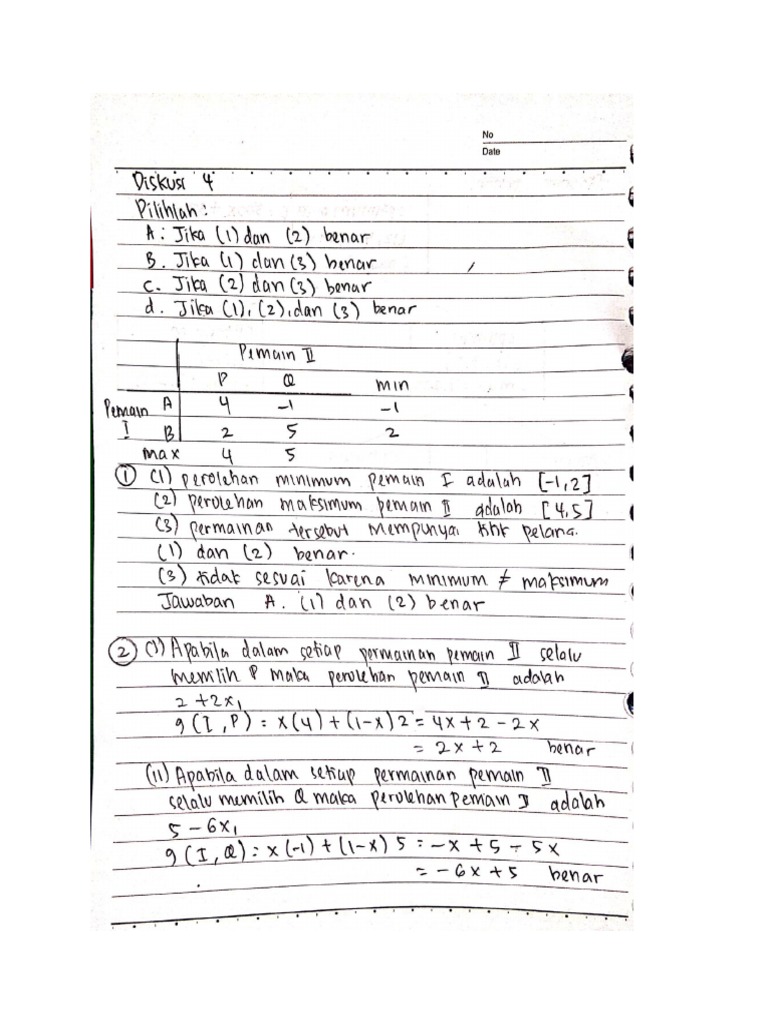 No
Date
Diskusi 4
Pilihlah :
A : Jika (1) dan (2) benar
B. Jika (1) dan (3) benar
C. Jika (2) dan (3) benar
d. Jika (1), (2), dan (3) benar
Pemain II
P Q min
Pemain A 4 -1 -1
I B 2 5 2
max 4 5
① (1) perolehan minimum pemain I adalah [-1,2]
(2) perolehan maksimum pemain II adalah [4,5]
(3) permainan tersebut mempunyai titik pelana.
(1) dan (2) benar.
(3) tidak sesuai karena minimum ≠ maksimum
Jawaban A. (1) dan (2) benar
② (1) Apabila dalam setiap permainan pemain II selalu
memilih P maka perolehan pemain I adalah
2 + 2x₁
g (I, P) = x(4) + (1-x) 2 = 4x + 2 - 2x
= 2x + 2 benar
(11) Apabila dalam setiap permainan pemain II
selalu memilih Q maka perolehan pemain I adalah
5 - 6x₁
g (I, Q) = x(-1) + (1-x) 5 = -x + 5 - 5x
= -6x + 5 benar